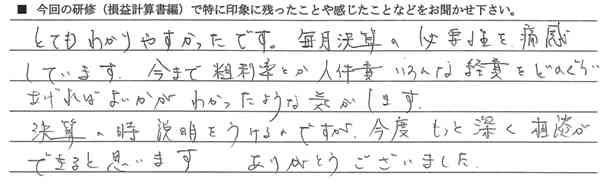 ■ 今回の研修（損益計算書編）で特に印象に残ったことや感じたことなどをお聞かせ下さい。
とてもわかりやすかったです。毎月決算の必要性を痛感
しています。今まで粗利率とか人件費いろんな経費をどのぐらい
上げればよいかがわかったような気がします。
決算の時説明をうけるのですが、今度もっと深く相談が
できると思います ありがとうございました。